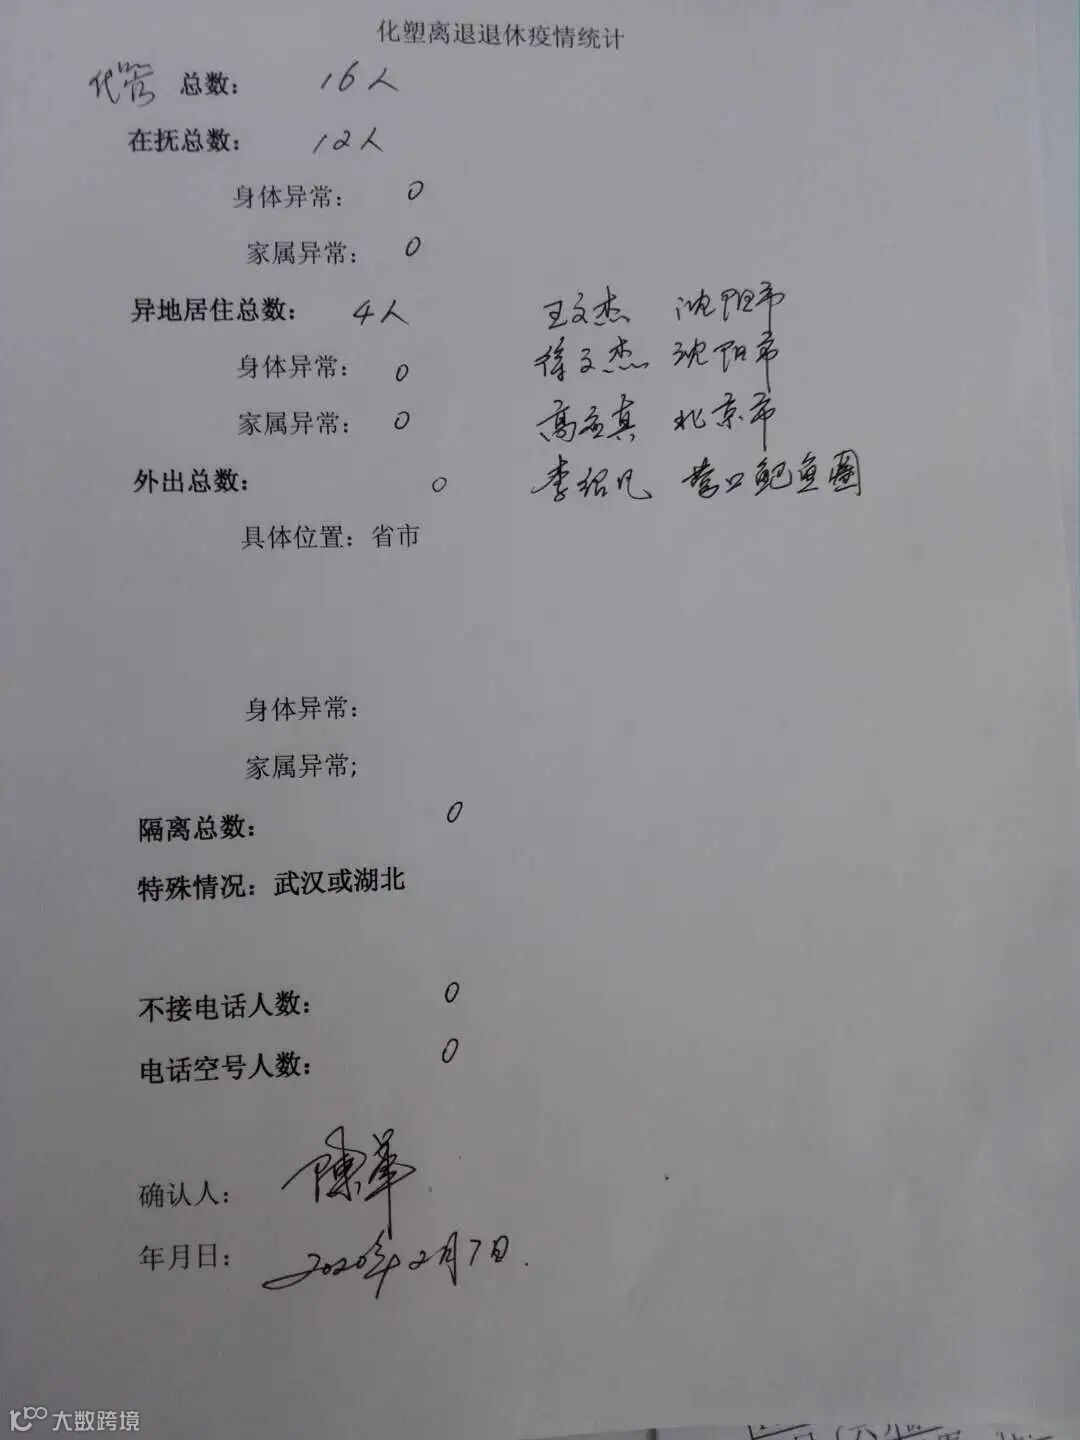 化塑离退退休疫情统计
代管 总数： 16人
在抚总数： 12人
身体异常： 0
家属异常： 0
异地居住总数： 4人 王文杰 沈阳市
身体异常： 0 徐文杰 沈阳市
家属异常： 0 高孟真 北京市
外出总数： 0 李绍凡 营口鲅鱼圈
具体位置：省市
身体异常：
家属异常;
隔离总数： 0
特殊情况：武汉或湖北
不接电话人数： 0
电话空号人数： 0
确认人： 陈革
年月日： 2020年2月7日.
大数跨境